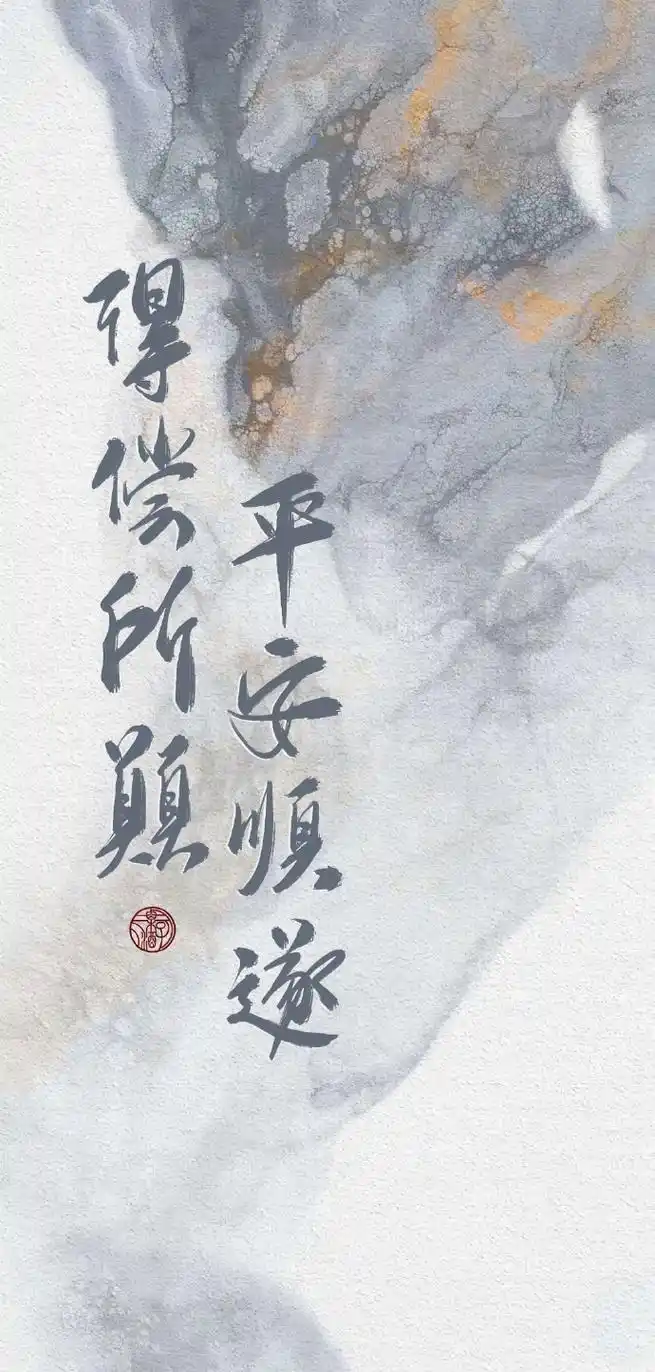 平安順遂
得偿所願